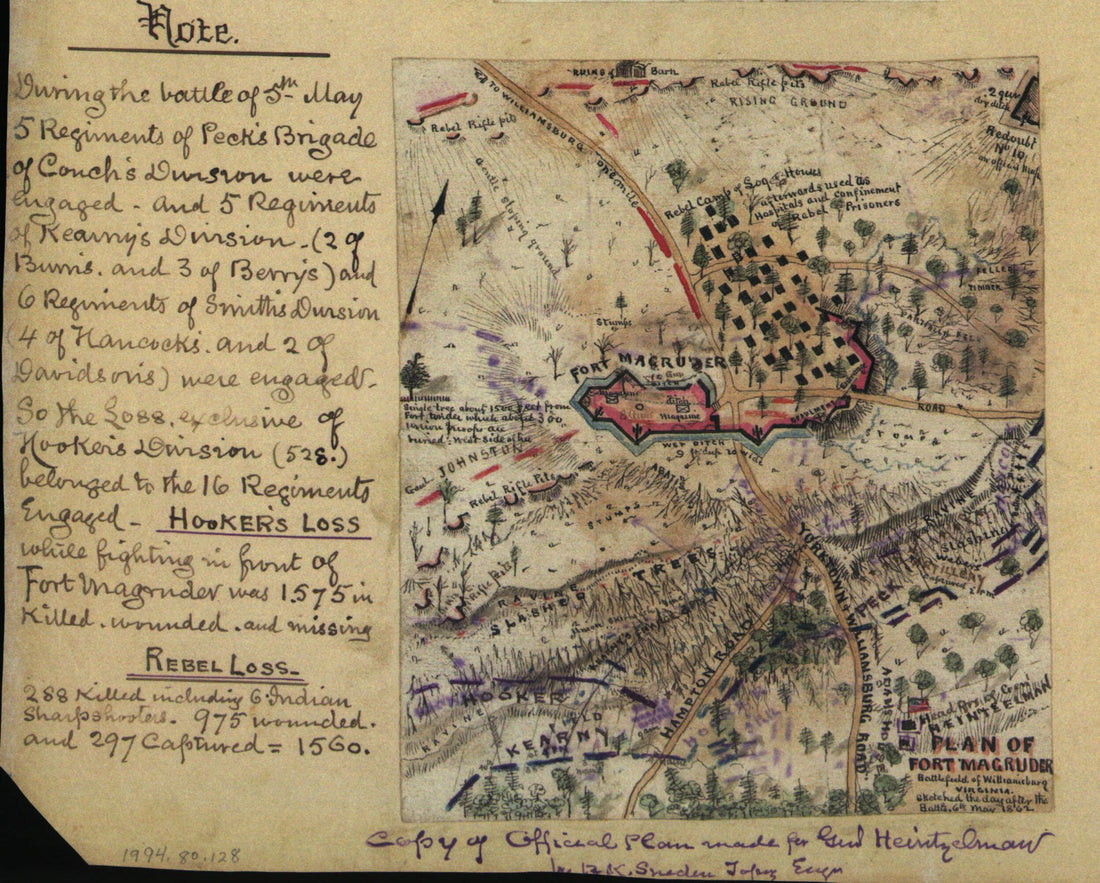 Note.
During the battle of 5th May
5 Regiments of Peck's Brigade
of Couch's Division were
engaged - and 5 Regiments
of Kearny's Division - (2 of
Birnis. and 3 of Berry's) and
6 Regiments of Smith's Division
(4 of Hancocks. and 2 of
Davidson's) were engaged -
So the Loss, exclusive of
Hooker's Division (528.)
belonged to the 16 Regiments
Engaged - HOOKER'S LOSS
while fighting in front of
Fort Magruder was 1.575 in
Killed. wounded. and missing
REBEL LOSS.
288 Killed including 6 Indian
Sharpshooters. 975 wounded.
and 297 Captured = 1560.
1994.80.128
RUINS
Barn
Rebel Rifle pits
RISING GROUND
2 gun
dry ditch
Redoubt
No 10
TO WILLIAMSBURG ONE MILE
Rebel Rifle pits
Gentle sloping ground
Rebel Camp of Log Houses
afterwards used as
Hospitals and confinement
of Rebel Prisoners
FELLED
TIMBER
Stumps
FORT MAGRUDER
Magazine
Single tree about 1500 feet from
Fort under which about 300
are
buried. West side of the
ROAD
WET DITCH
9 ft deep 10 wide
JOHNSTON
Rebel Rifle Pits
ABATIS
STUMPS
STUMPS
RAVINE
SLASHED TREES
RAVINE
SLASHING
ARTILLERY
YORKTOWN & WILLIAMSBURG ROAD
PECK
HAMPTON ROAD
HOOKER
RAVINE
KEARNY
ADAMS HOUSE
Head Qrs of Genl
HEINTZELMAN
PLAN OF
FORT MAGRUDER
Battlefield of Williamsburg
VIRGINIA.
Sketched the day after the
Battle, 6th May 1862.
Copy of Official Plan made for Genl Heintzelman
by R.K. Sneden Topog Engr